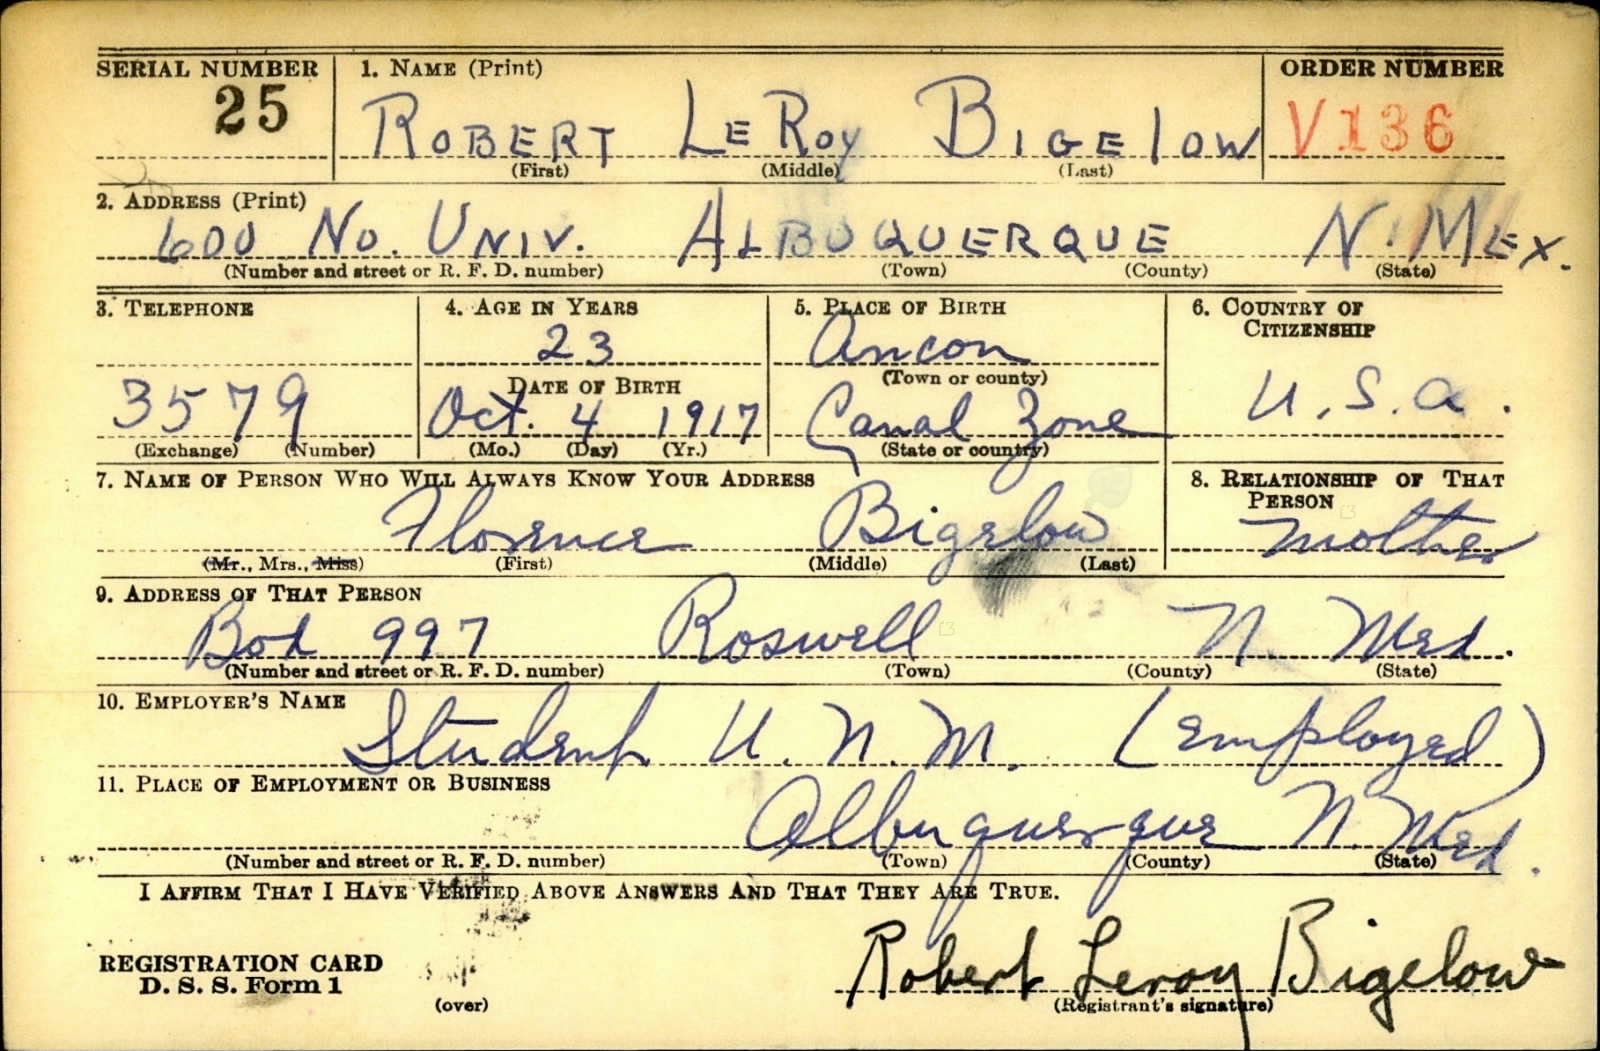 SERIAL NUMBER 1. NAME (Print) ORDER NUMBER
25 ROBERT LEROY BIGELOW V136
(First) (Middle) (Last)
2. ADDRESS (Print)
600 NO. UNIV. ALBUQUERQUE N. MEX.
(Number and street or R. F. D. number) (Town) (County) (State)
3. TELEPHONE 4. AGE IN YEARS 5. PLACE OF BIRTH 6. COUNTRY OF
CITIZENSHIP
23 Ancon
DATE OF BIRTH (Town or county)
3579 Oct. 4 1917 Canal Zone U.S.A.
(Exchange) (Number) (Mo.) (Day) (Yr.) (State or country)
7. NAME OF PERSON WHO WILL ALWAYS KNOW YOUR ADDRESS 8. RELATIONSHIP OF THAT
PERSON
Florence Bigelow Mother
(Mr., Mrs., Miss) (First) (Middle) (Last)
9. ADDRESS OF THAT PERSON
Box 997 Roswell N. Mex.
(Number and street or R. F. D. number) (Town) (County) (State)
10. EMPLOYER'S NAME
Student U. N. M. (Employed)
11. PLACE OF EMPLOYMENT OR BUSINESS
Albuquerque N. Mex.
(Number and street or R. F. D. number) (Town) (County) (State)
I AFFIRM THAT I HAVE VERIFIED ABOVE ANSWERS AND THAT THEY ARE TRUE.
REGISTRATION CARD
D. S. S. Form 1
(over)
Robert Leroy Bigelow
(Registrant's signature)